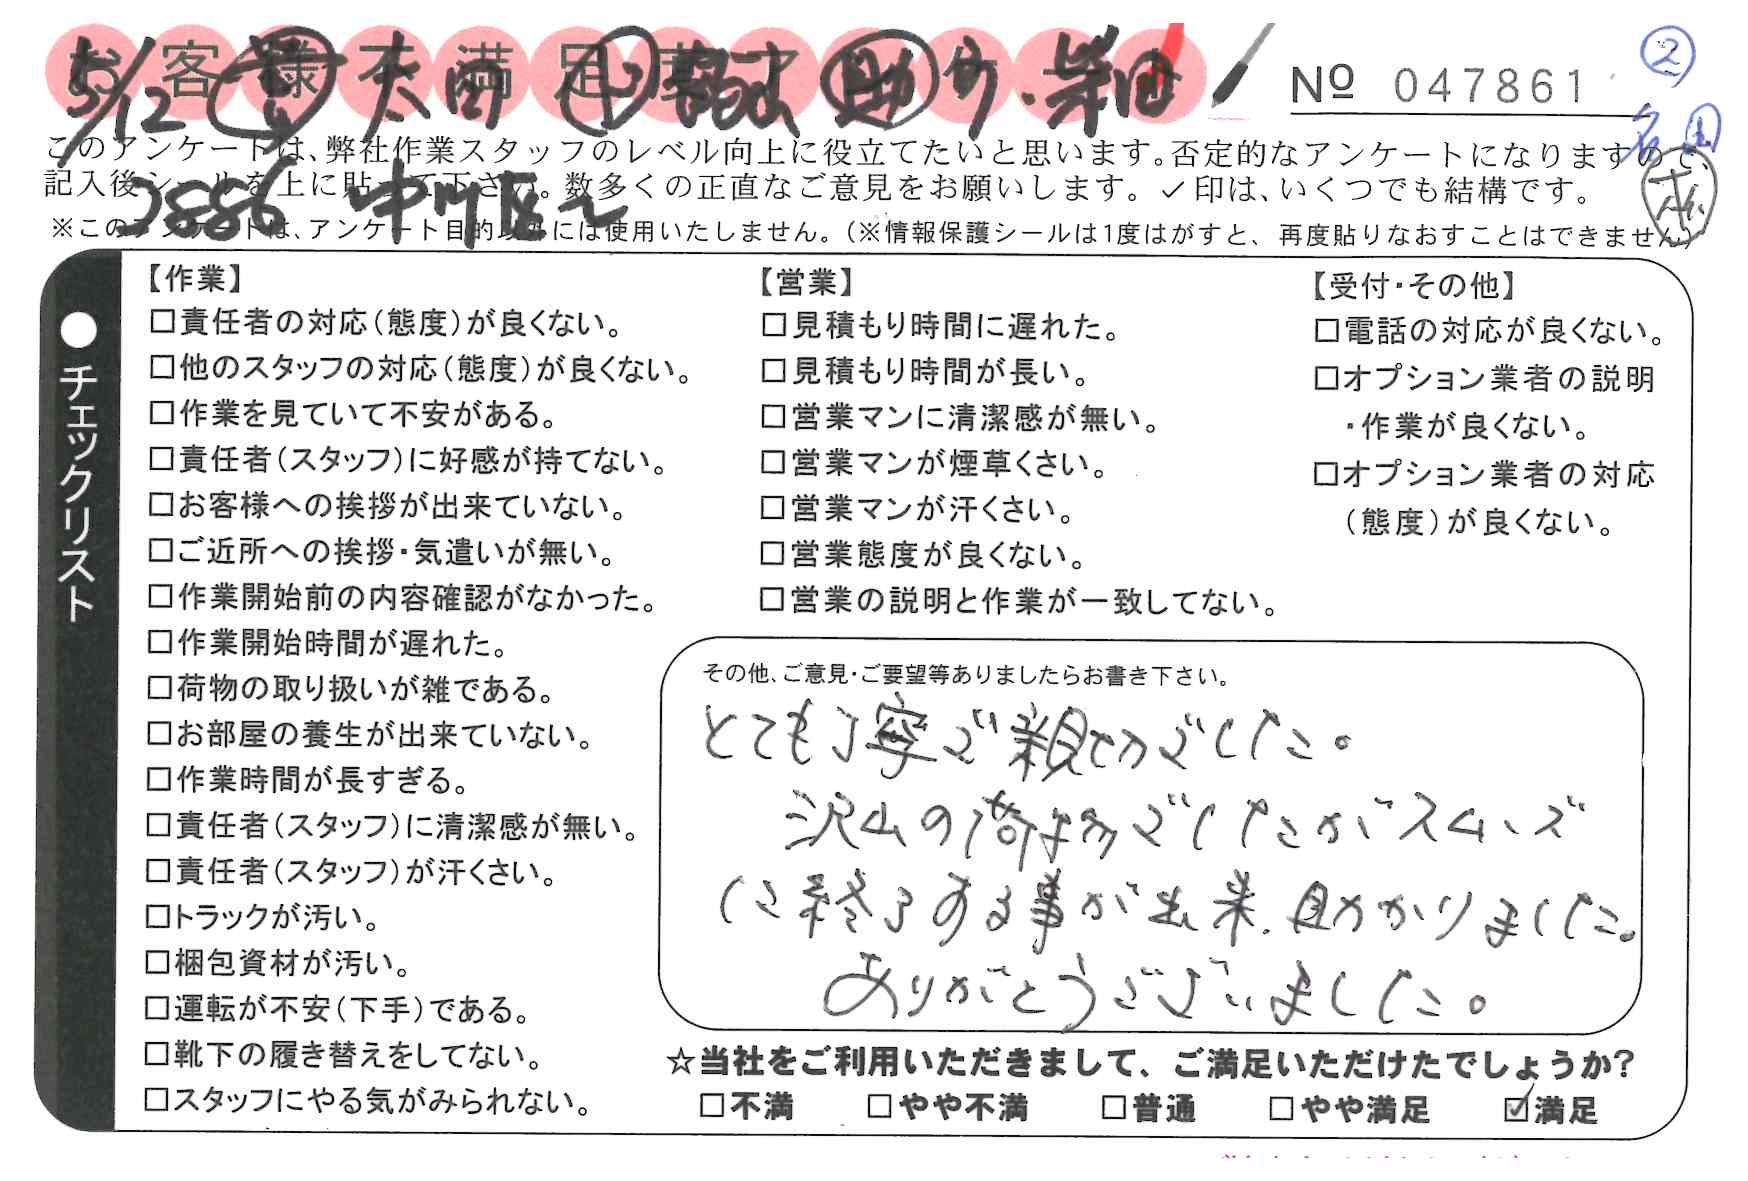 お客様不満足度アンケート
5/12 責 太田 助
Nº 047861
②
このアンケートは、弊社作業スタッフのレベル向上に役立てたいと思います。否定的なアンケートになりますので、
記入後シールを上に貼って下さい。数多くの正直なご意見をお願いします。✓印は、いくつでも結構です。
2886 中川区
※このアンケートは、アンケート目的以外には使用いたしません。(※情報保護シールは1度はがすと、再度貼りなおすことはできません)
●チェックリスト
【作業】
□責任者の対応(態度)が良くない。
□他のスタッフの対応(態度)が良くない。
□作業を見ていて不安がある。
□責任者(スタッフ)に好感が持てない。
□お客様への挨拶が出来ていない。
□ご近所への挨拶・気遣いが無い。
□作業開始前の内容確認がなかった。
□作業開始時間が遅れた。
□荷物の取り扱いが雑である。
□お部屋の養生が出来ていない。
□作業時間が長すぎる。
□責任者(スタッフ)に清潔感が無い。
□責任者(スタッフ)が汗くさい。
□トラックが汚い。
□梱包資材が汚い。
□運転が不安(下手)である。
□靴下の履き替えをしてない。
□スタッフにやる気がみられない。
【営業】
□見積もり時間に遅れた。
□見積もり時間が長い。
□営業マンに清潔感が無い。
□営業マンが煙草くさい。
□営業マンが汗くさい。
□営業態度が良くない。
□営業の説明と作業が一致してない。
【受付・その他】
□電話の対応が良くない。
□オプション業者の説明
・作業が良くない。
□オプション業者の対応
(態度)が良くない。
その他、ご意見・ご要望等ありましたらお書き下さい。
とても丁寧で親切でした。
沢山の荷物でしたがスムーズ
に終了する事が出来、助かりました。
ありがとうございました。
☆当社をご利用いただきまして、ご満足いただけたでしょうか?
□不満 □やや不満 □普通 □やや満足 ☑満足